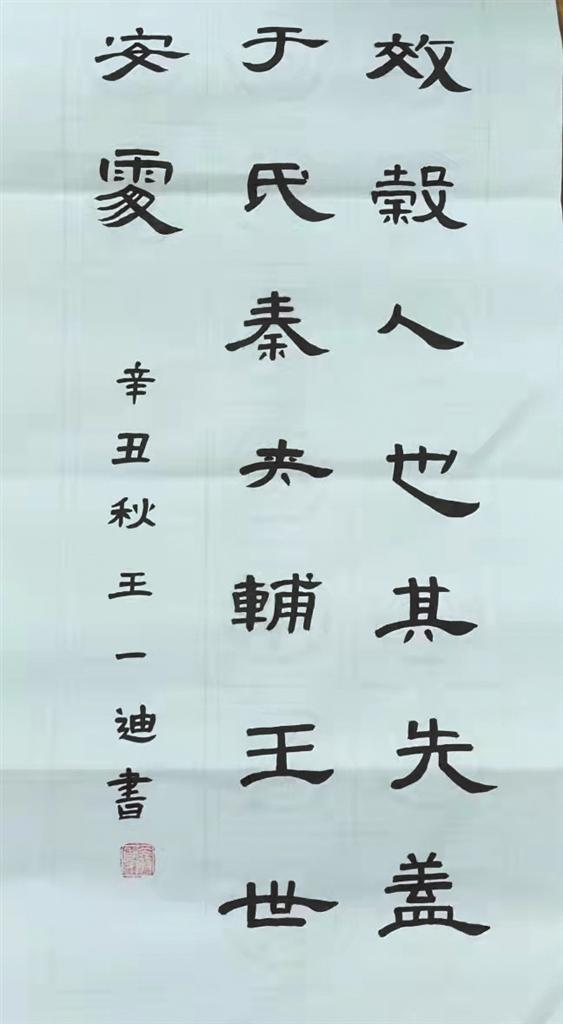 效穀人也其先盖
于氏秦夾輔王世
安處
辛丑秋王一迪書